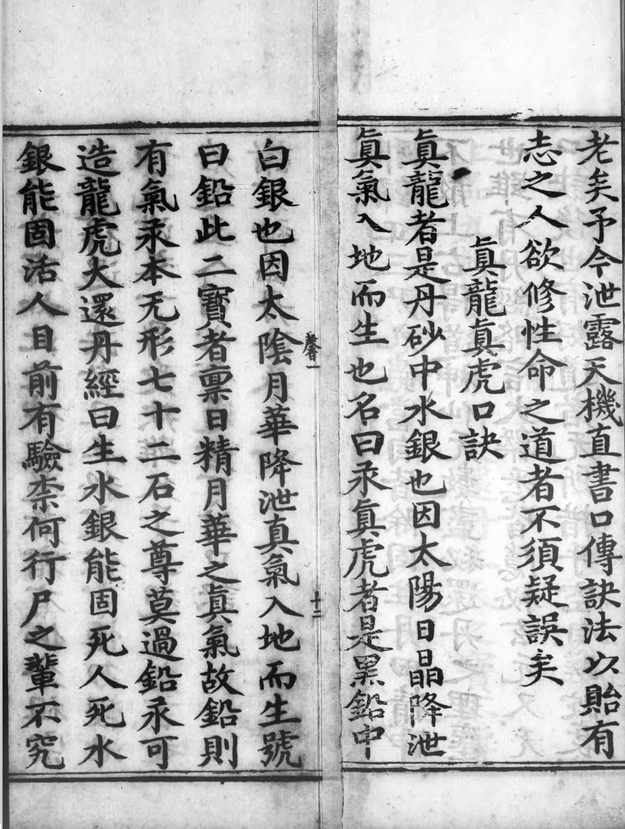 老矣予今泄露天機直書口傳訣法以貽有
志之人欲修性命之道者不須疑誤矣
真龍真虎口訣
眞龍者是丹砂中水銀也因太陽日晶降泄
眞氣入地而生也名曰汞眞虎者是黑鉛中
白銀也因太陰月華降泄真氣入地而生號
曰鉛此二寶者禀日精月華之眞氣故鉛則
有氣汞本无形七十二石之尊莫過鉛汞可
造龍虎大還丹經曰生水銀能固死人死水
銀能固活人目前有驗柰何行尸之輩不究
十二